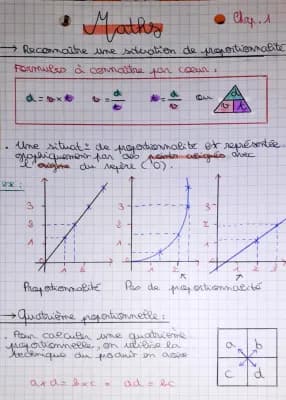 Maths
Chp. 1
→ Reconnaître une situation de proportionnalité
Formules à connaître par cœur :
d = v × t   v = d/t   t = d/v   ou   d v t
. Une situat° de proportionnalité est représentée
graphiquement par des points alignés avec
l'origine du repère (0).
ex :
3 2 1 1 2
3 2 1 1 2
3 2 1 1 2 3
Proportionnalité   Pas de proportionnalité
→ Quatrième proportionnelle :
. Pour calculer une quatrième
proportionnelle, on utilise la
technique du produit en croix
a b
c d
a × d = b × c = ad = bc